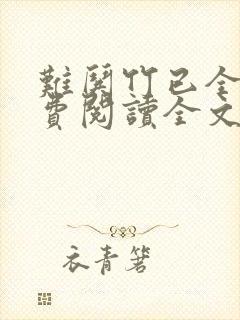 難哭竹已全
費閱讀全文
衣青箬